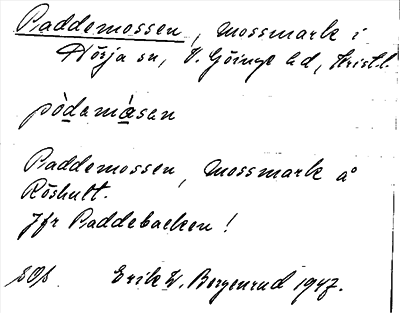 Paddemossen, mossmark i
Nörja sn, V. Göinge hd, Kristl.
pòdemåsan
Paddemossen, mossmark å
Röshult.
Jfr Paddebacken!
Erik W. Bergenrud 1947.